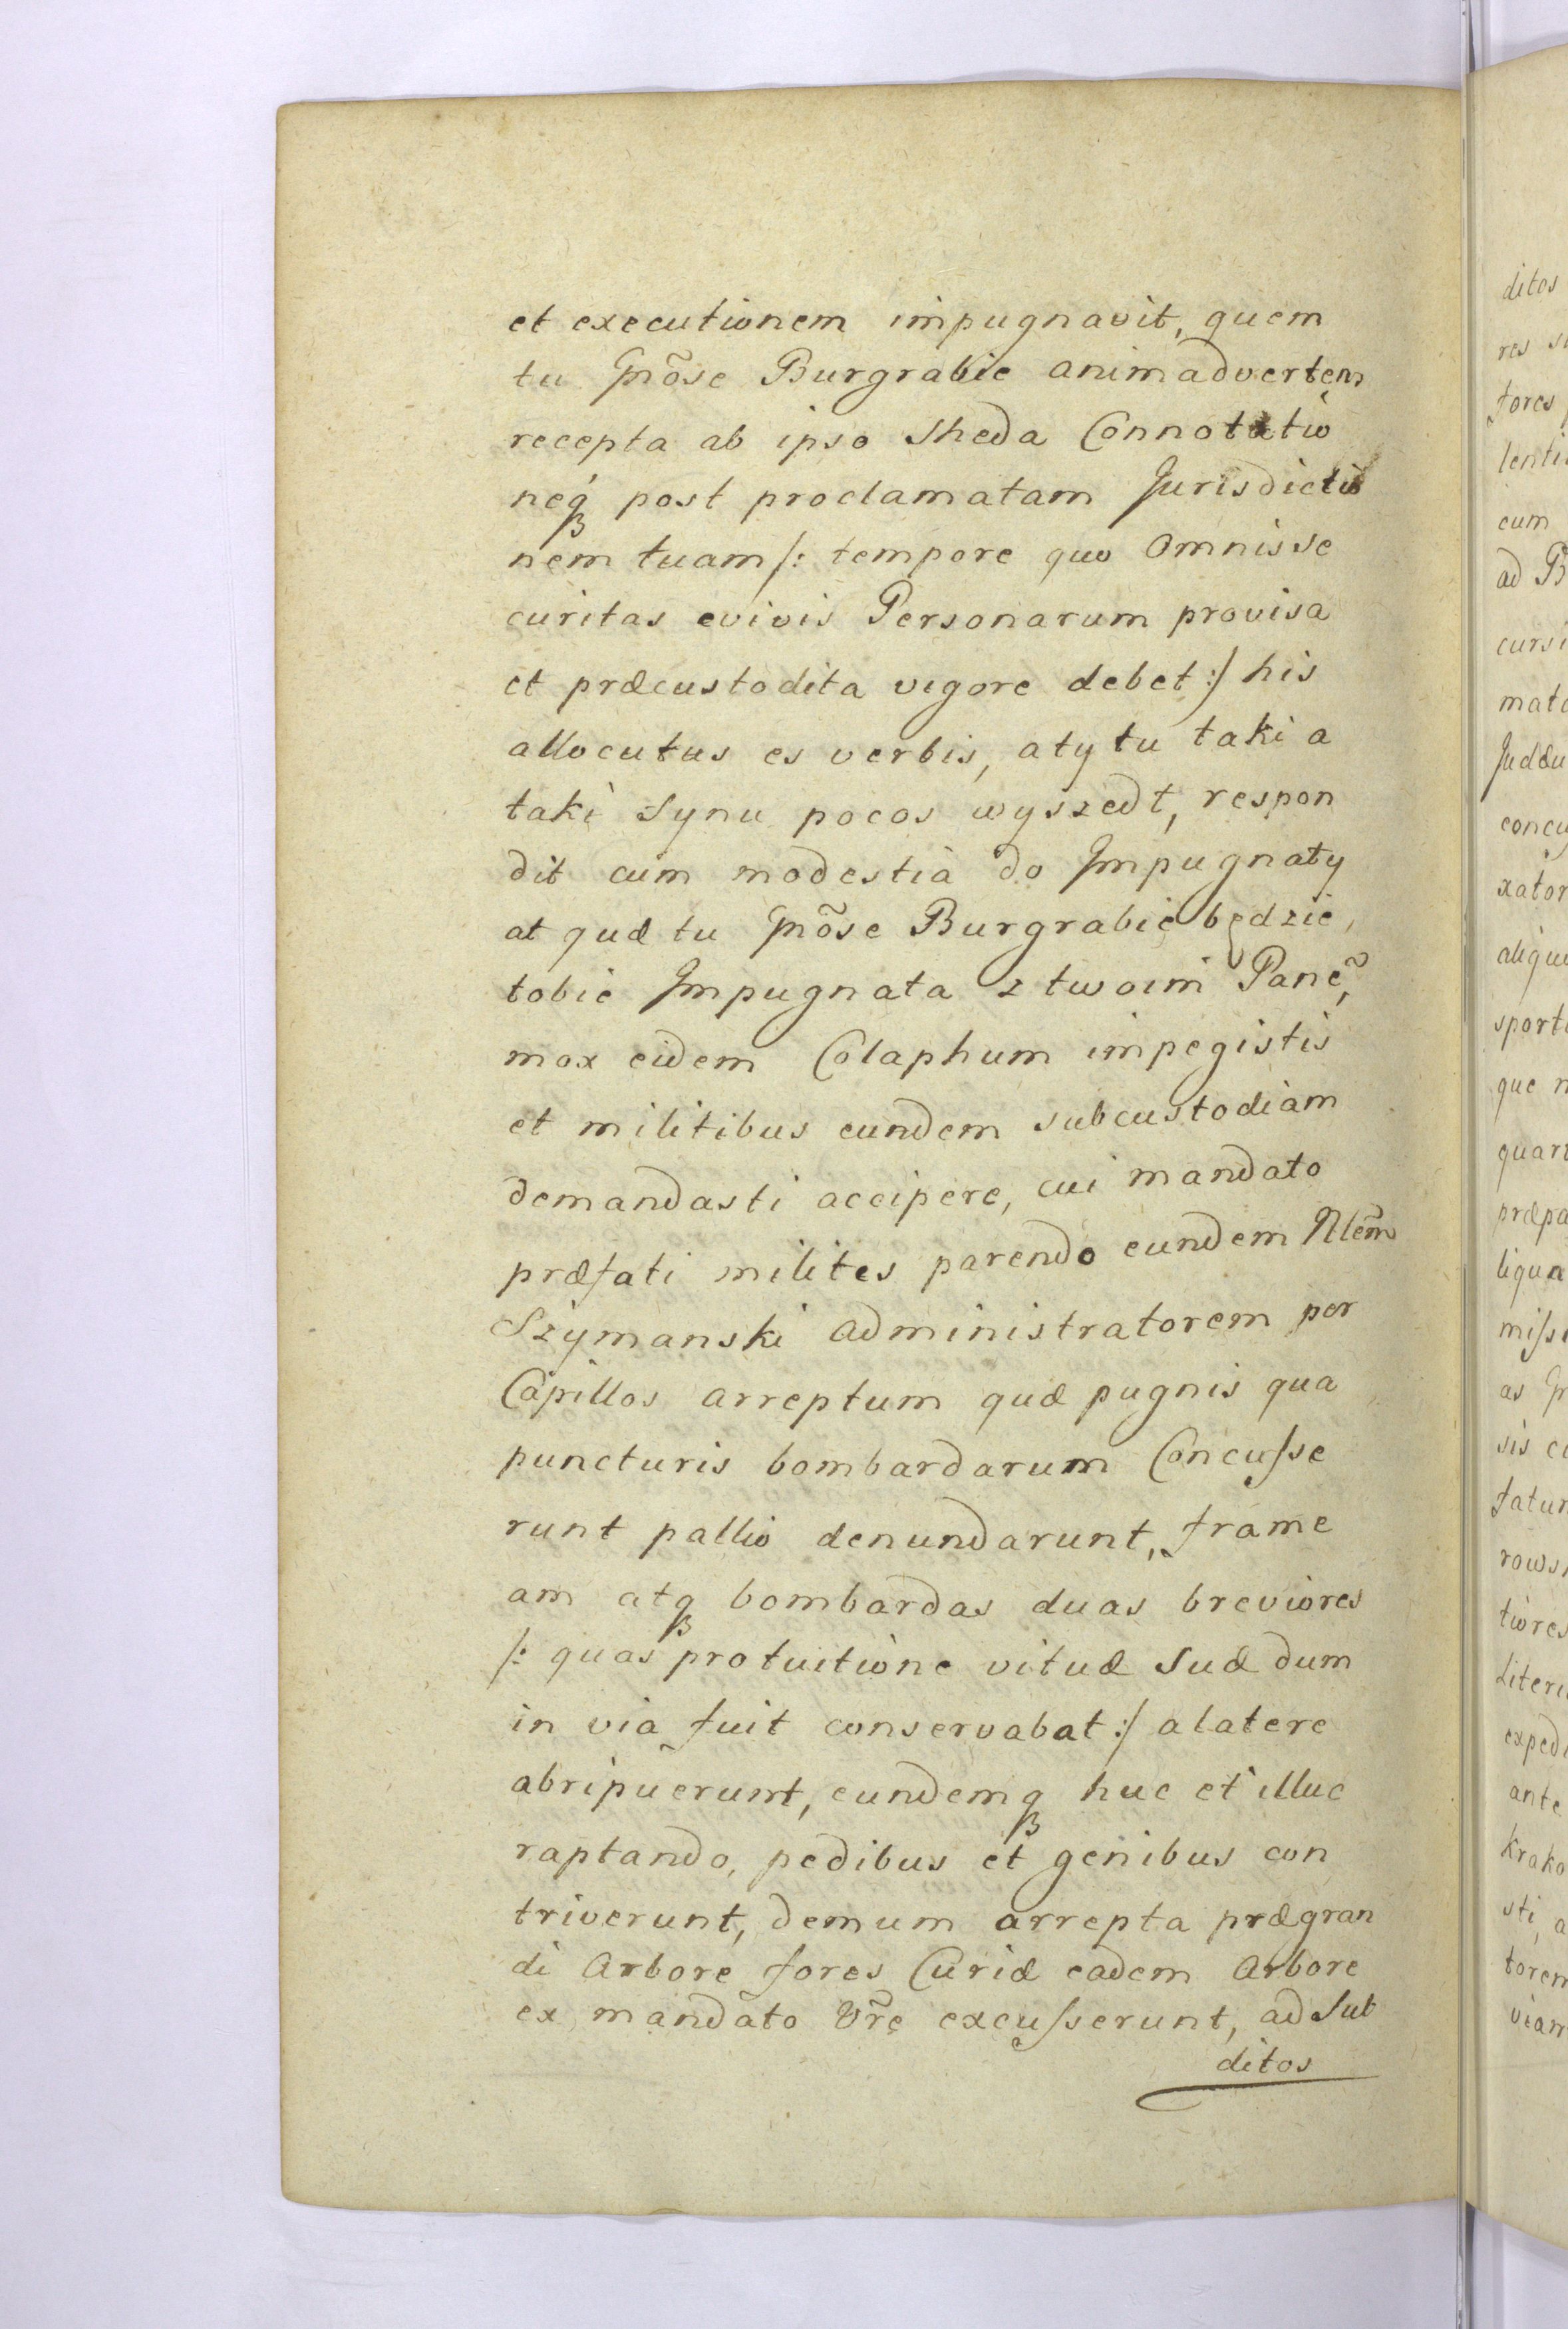 et executionem impugnavit, quem
tu Gñõse Burgrabie animadvertens
recepta ab ipso Sheda Connotatio
neq́ post proclamatam Jurisdictio
nem tuam /: tempore quo Omnis Se
curitas evivis Personarum provisa
et præcustodita vigore debet :/ his
allocutus es verbis, a ty tu taki a
taki Synu pocos wyszedt, respon
dit cum modestia do Impugnaty
at quæ tu Gñõse Burgrabie będzie,
tobie Impugnata z twoim Panẽ,
mox eidem Colaphum impegistis
et militibus eundem subcustodiam
demandasti accipere, cui mandato
præfati milites parendo eundem Nlem̃
Szymanski administratorem per
Capillos arreptum quæ pugnis qua
puncturis bombardarum Concusse
runt pallio denundarunt, frame
am atq́ bombardas duas breviores
/: quas protuitione vituæ Suæ dum
in via fuit conservabat :/ alatere
abripuerunt, eundemq́ huc et illuc
raptando, pedibus et genibus con
triverunt, demum arrepta prægran
di Arbore fores Curiæ eadem Arbore
ex mandato Vr̃e excusserunt, ad Sub
ditos
ditos
res
fores
lenti
cum
ad B
cursi
mato
Juddu
concu
xator
aliqu
sport
que
quar
præpa
liqua
misse
as
sis
fatur
rows
tiores
Liter
exped
ante
Krako
sti, a
torem
viam